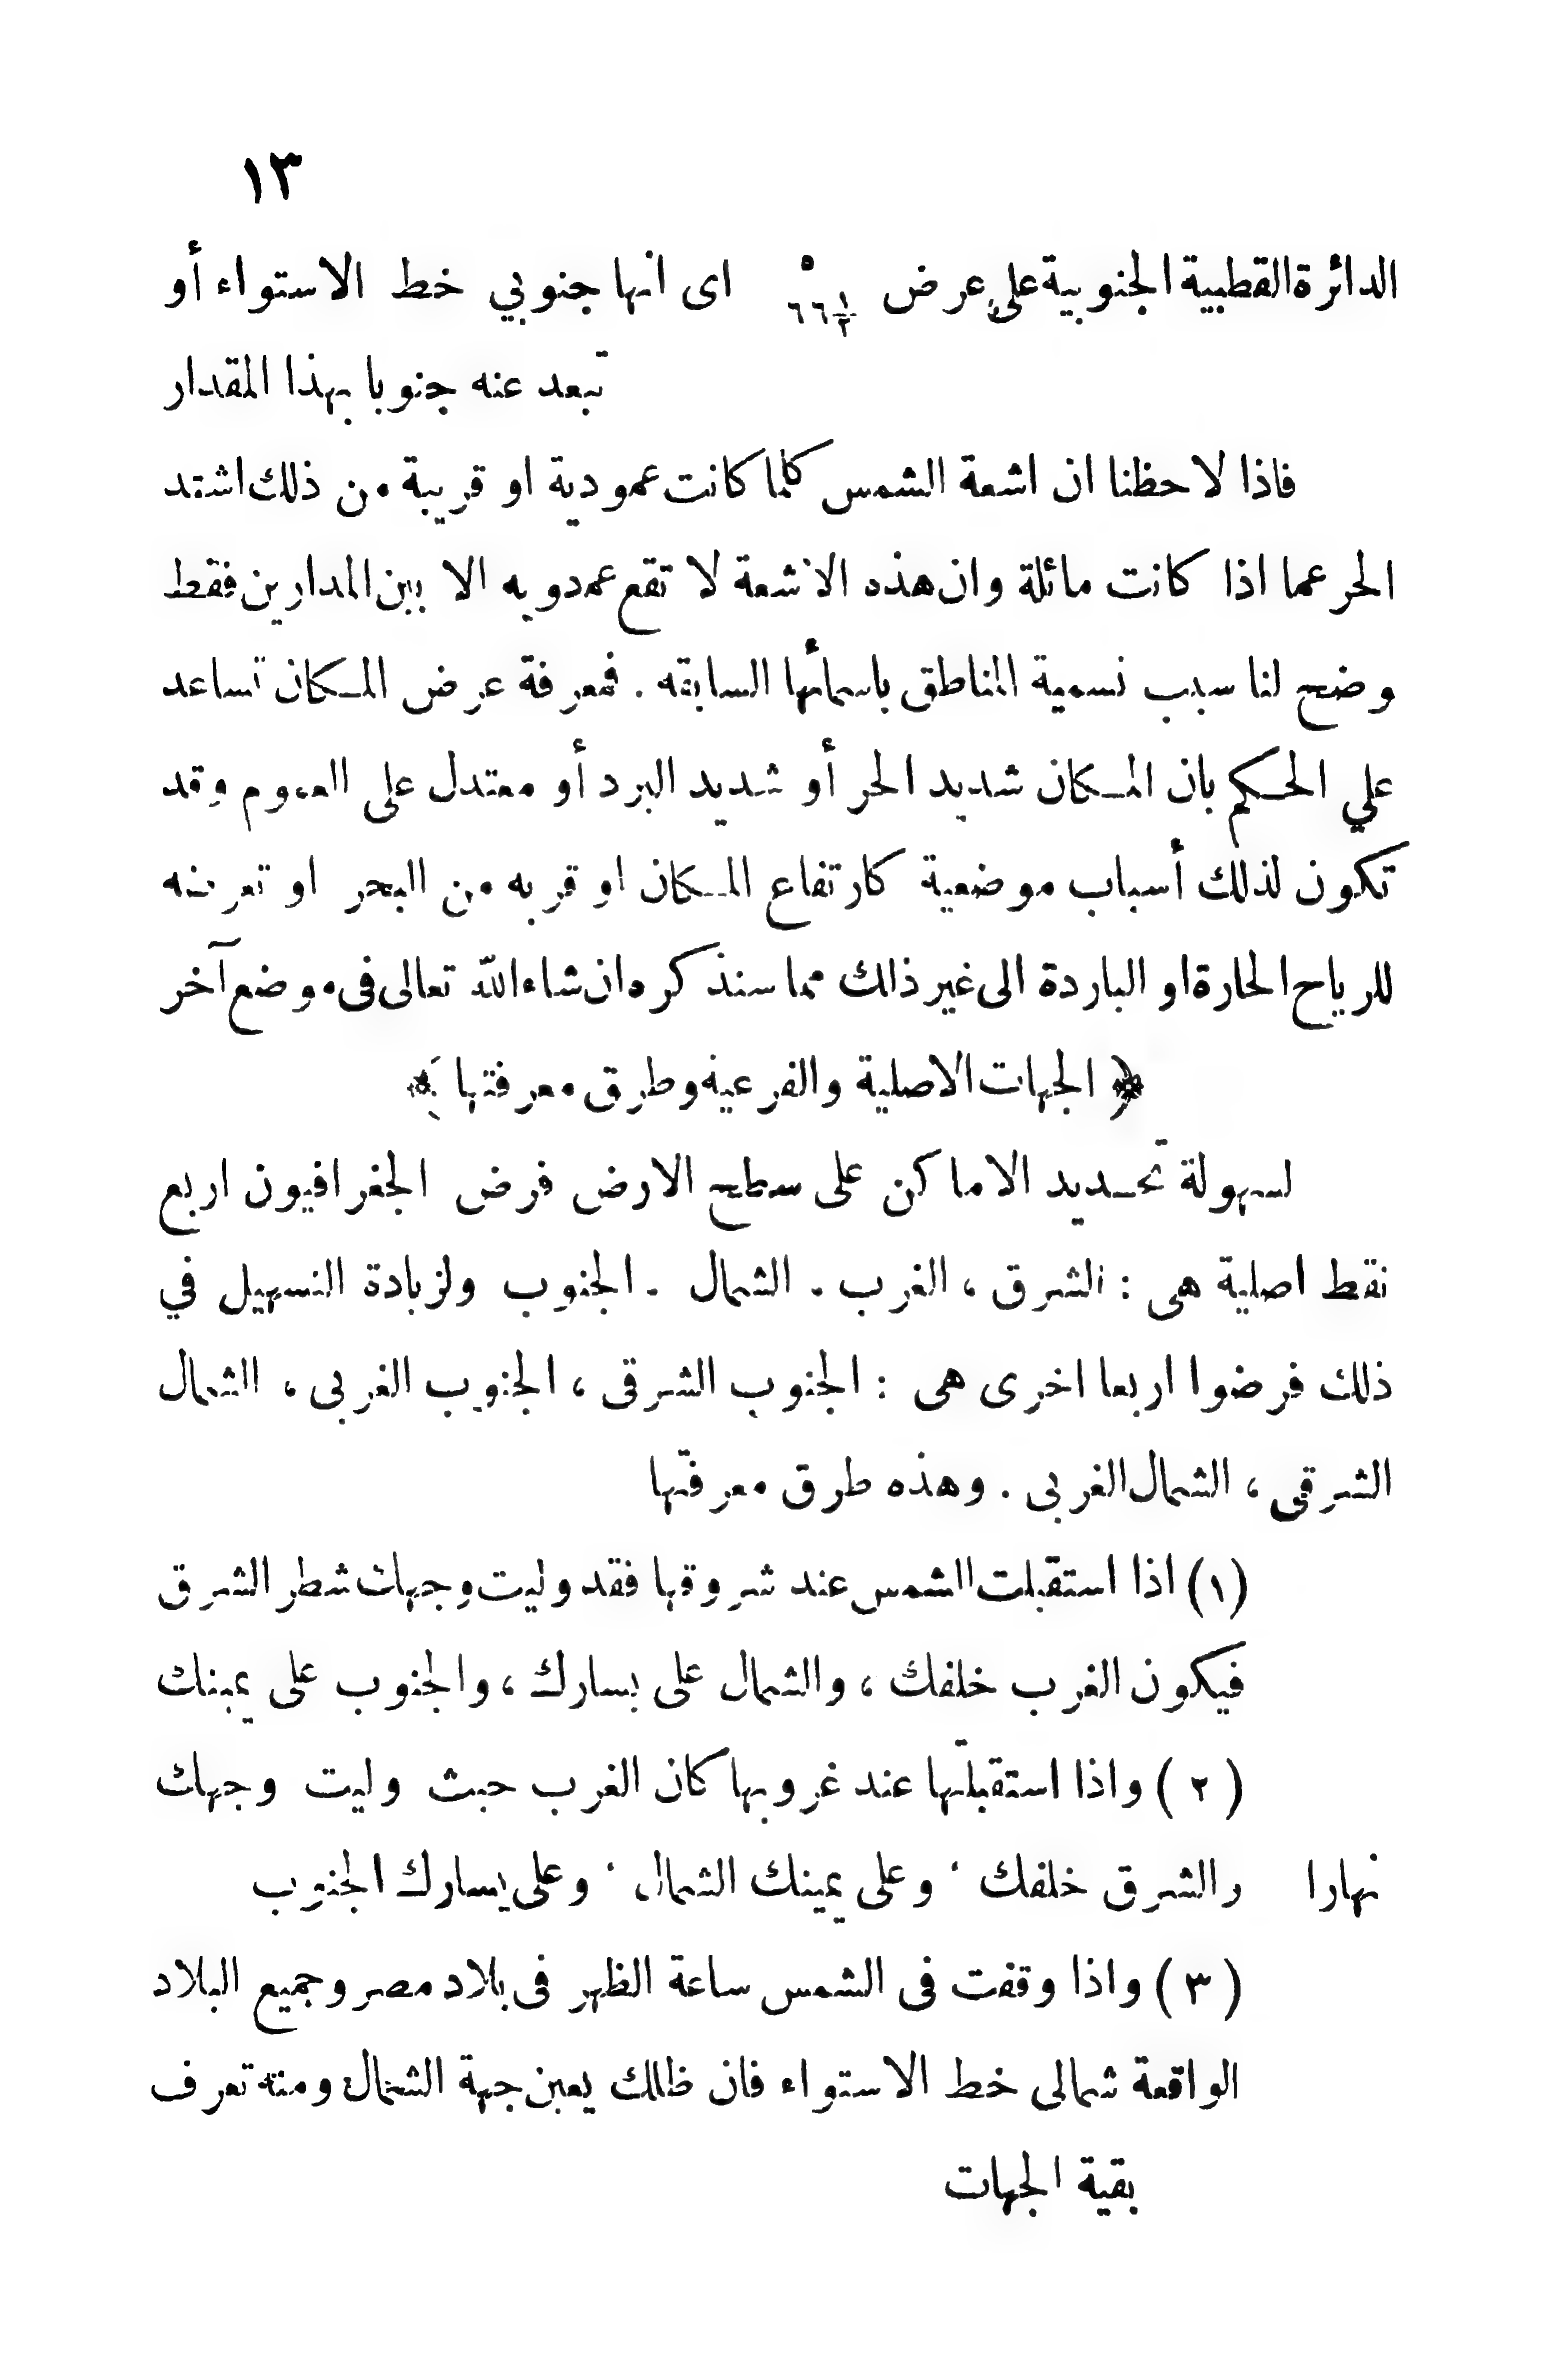 ١٣
الدائرة القطبية الجنوبية على عرض ٦٦ ١/٢ ° اى انها جنوبي خط الاستواء أو
تبعد عنه جنوبا بهذا المقدار
فاذا لاحظنا ان اشعة الشمس كلما كانت عمودية او قريبة من ذلك اشتد
الحر عما اذا كانت مائلة وان هذه الاشعة لا تقع عمدويه الا بين المدارين فقط
وضح لنا سبب تسمية المناطق باسمائها السابقه . فمعرفة عرض المكان تساعد
علي الحكم بان المكان شديد الحر أو شديد البرد أو معتدل على العموم وقد
تكون لذلك أسباب موضعية كارتفاع المكان او قربه من البحر او تعرضه
للرياح الحارة او الباردة الى غير ذلك مما سنذكره ان شاء الله تعالى فى موضع آخر
﴿ الجهات الاصلية والفرعية وطرق معرفتها ﴾
لسهولة تحديد الاماكن على سطح الارض فرض الجغرافيون اربع
نقط اصلية هى : الشرق ، الغرب . الشمال . الجنوب ولزيادة التسهيل في
ذلك فرضوا اربعا اخرى هى : الجنوب الشرقى ، الجنوب الغربى ، الشمال
الشرقى ، الشمال الغربى . وهذه طرق معرفتها
(١) اذا استقبلت الشمس عند شروقها فقد وليت وجهك شطر الشرق
فيكون الغرب خلفك ، والشمال على يسارك ، والجنوب على يمينك
(٢) واذا استقبلتها عند غروبها كان الغرب حيث وليت وجهك
نهارا والشرق خلفك ، وعلى يمينك الشمال ، وعلى يسارك الجنوب
(٣) واذا وقفت فى الشمس ساعة الظهر فى بلاد مصر وجميع البلاد
الواقعة شمالى خط الاستواء فان ظلك يعين جهة الشمال ومنه تعرف
بقية الجهات